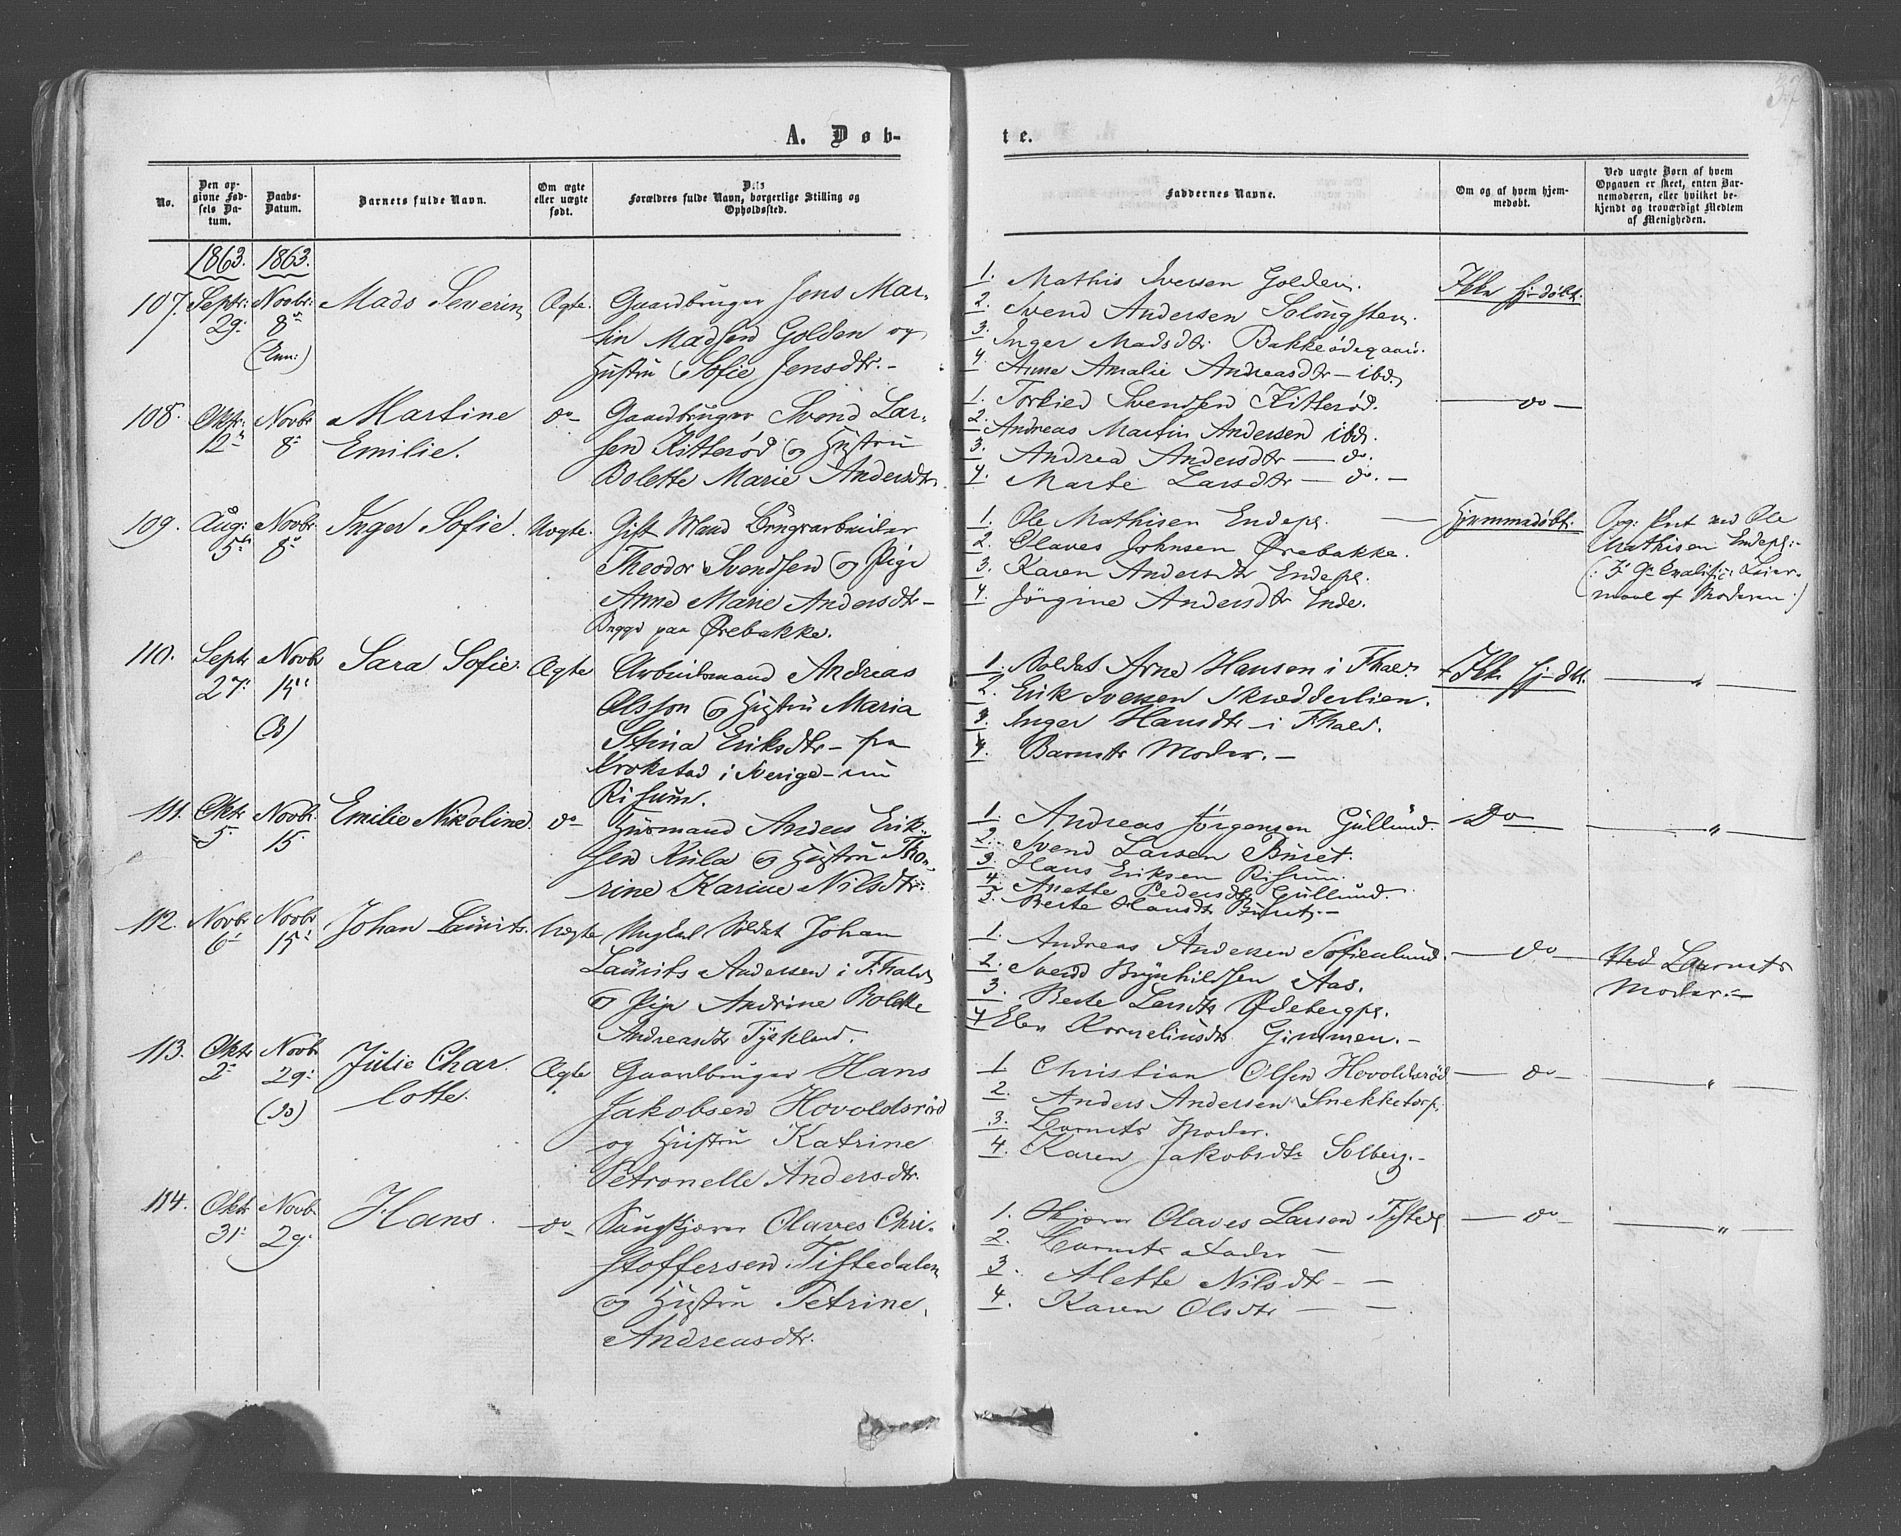 A. Døb-
te.
No.
Den op-
givne Fød-
sels Da-
tum.
Daabs-
Datum.
Barnets fulde Navn.
Om ægte
eller uægte
født.
Forældres fulde Navn, borgerlige Stilling og
Opholdssted.
Faddernes Navne.
Om og af hvem hjem-
medøbt.
Ved uægte Børn af hvem
Opgaven er skeet, enten Bar-
nemoderen, eller hvilket be-
kjendt og troværdigt Medlem
af Menigheden.
1863. 1863.
107. Septr: 29. Novbr: 8de
Mads Severin
Ægte.
Gaardbruger Jens Mar-
tin Madsen Golden og
Hustru Sofie Jensdtr.-
1. Mathis Iversen Golden.
2. Svend Andersen
3. Inger Madsdtr Bakkeødegaard.
4. Anne Amalie Andreasdtr - ibd.
Ikke hj-døbt.
108. Oktr: 12te Novbr 8de
Martine
Emilie.
do
Gaardbruger Svend Lar-
sen Kitterød og Hustru
Bolette Marie Andersdtr.
1. Torkied Svendsen Kitterød.
2. Andreas Martin Andersen ibd.
3. Andrea Andersdtr — do.
4. Marte Larsdtr — do. -
— do —
109. Aug: 5te Novbr. 8de
Inger Sofie.
Uægte.
Gift Mand Brugsarbeider
Theodor Svendsen og Pige
Anne Marie Andersdtr -
Begge paa Ørebakke.
1. Ole Mathisen Endepl.
2. Olaves Johnsen Ørebakke.
3. Karen Andersdtr Endepl.
4. Jørgine Andersdtr Ende.
Hjemmedøbt.
Opg: skeet ved Ole
Mathisen Endepl:-
Leier-
maal af Moderen.)
110. Septr 27. Novbr 15de
Sara Sofie.
Ægte
Arbeidsmand Andreas
Olsson og Hustru Maria
Stina Eriksdtr - fra
Krokstad i Sverige - nu
Risum.
1. Soldat Arne Hansen i Fhald.
2. Erik Iversen Skrædderlien.
3. Inger Hansdtr i Fhald.
4. Barnets Moder. -
Ikke hj-dbt.
— " —
111. Oktr 5 Novbr. 15
Emilie Nikoline.
do
Husmand Anders Erik-
sen Kula og Hustru Tho-
rine Karine Nilsdtr.
1. Andreas Jørgensen Gullund.
2. Svend Larsen Buret.
3. Hans Eriksen Risum.
4. Anette Pedersdtr Gullund.
5. Berte Hansdtr Buret. -
Do
— " —
112. Novbr. 6te Novbr. 15de
Johan Laurits.
Uægte
Ungkarl Soldat Johan
Laurits Andersen i Fhald
og Pige Andrine Bolette
Andreasdtr
1. Andreas Andersen Sofienlund.
2. Svend Brynhildsen Aas.
3. Berte Larsdtr Ødebergpl.
4. Elen Kornelinsdtr Gimmen. -
— do —
Ved Barnets
Moder. -
113. Oktr 2den Novbr 29de
Julie Char-
lotte.
Ægte
Gaardbruger Hans
Jakobsen Hovoldsrød
og Hustru Katrine
Petronelle Andersdtr.
1 Christian Olsen Hovoldsrød
2. Anders Andersen Snekketorp.
3. Barnets Moder.
4. Karen Jakobsdtr Solberg. -
— do —
— " —
114. Oktr 31. Novbr. 29.
Hans.
— do —
Olaves Chri-
stoffersen i Tistedalen
og Hustru Petrine
Andreasdtr.
1. Olaves Larsen Tisted.
2. Barnets Fader —
3. Alette Nilsdtr — —
4. Karen Olsdtr — —
— do —
— " —